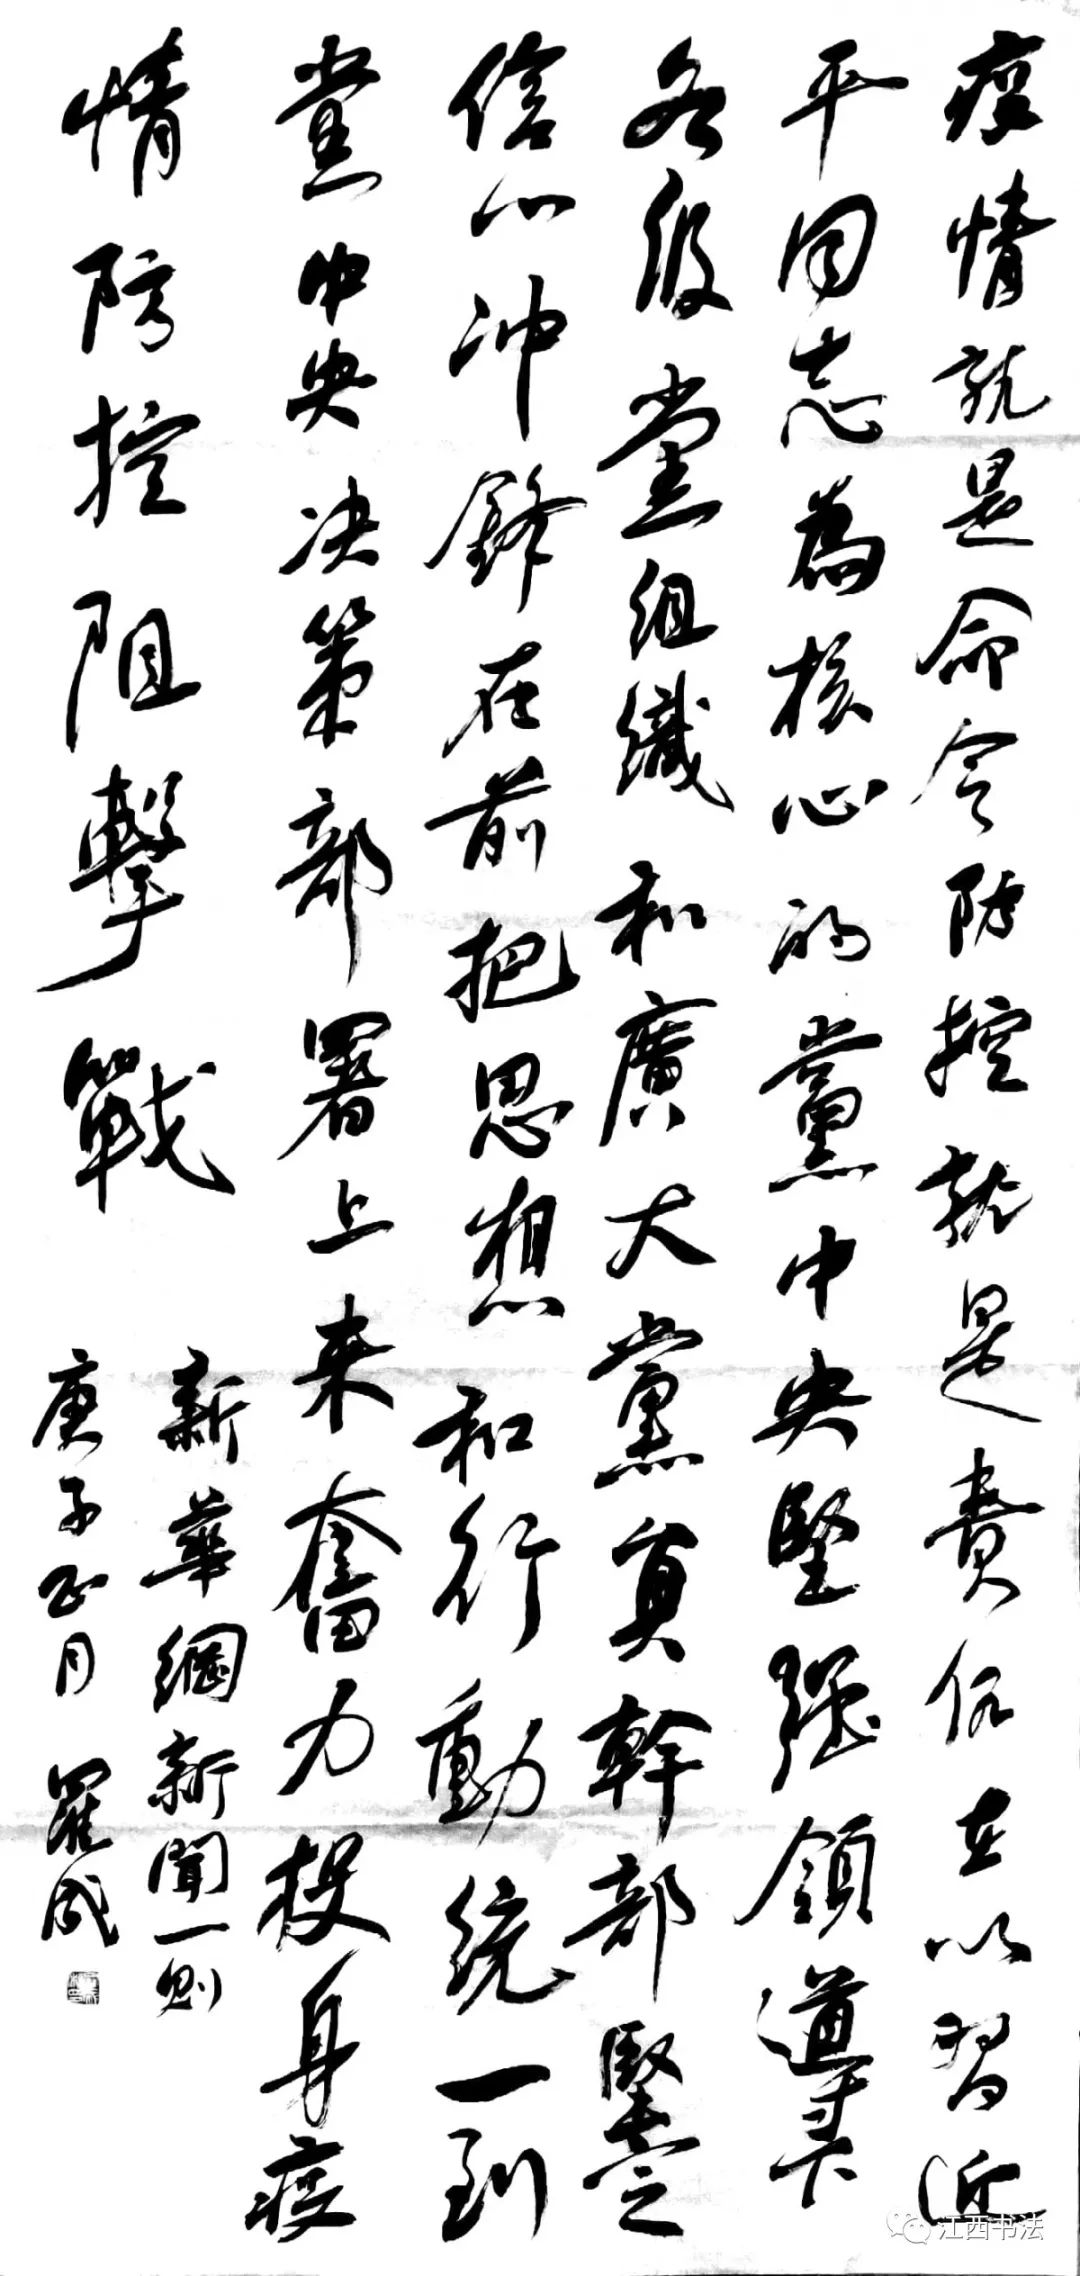 疫情就是命令防控就是責任在以習近
平同志為核心的黨中央堅强領導下
各级党组織和廣大黨員幹部堅定
信心冲鋒在前把思想和行動統一到
党中央决策部署上来奮力投身疫
情防控阻擊戰
新華網新聞一則
庚子正月羅成
江西书法